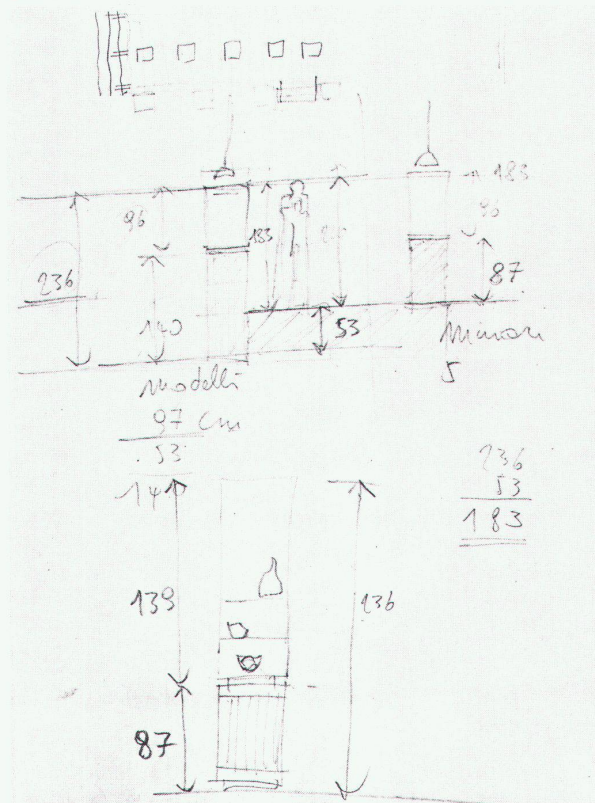 183
96
96
183
236
87
140
53
Minori
5
modelli
97 cm
53
236
53
183
139
236
87